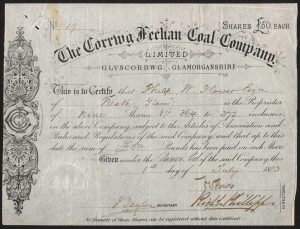 No. 19
SHARES £50 EACH.
The Corrwg Fechan Coal Company,
LIMITED
GLYNCORRWG, GLAMORGANSHIRE
This is to Certify that Philip W. Flower Esq.
of Neath is the Proprietor
of Nine Shares No 364 to 372 inclusive
in the above Company, subject to the Articles of Association and
Rules and Regulations of the said Company and that up to this
date the sum of Pounds has been paid on each Share
Given under the Common Seal of the said Company this
day of July
SECRETARY.
DIRECTORS.
No Transfer of these Shares can be registered without this Certificate.